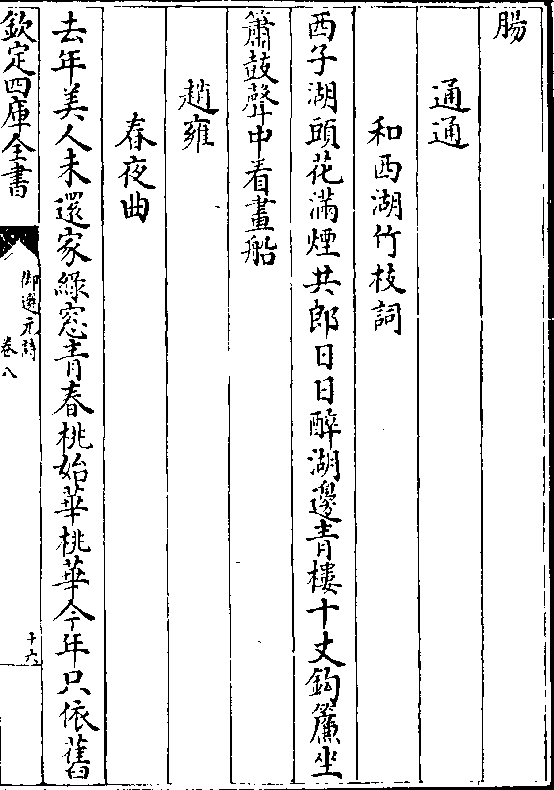 腸
通通
和西湖竹枝詞
西子湖頭花滿煙共郎日日醉湖邊青樓十丈鈎簾坐
簫鼓聲中看畫船
趙雍
春夜曲
去年美人未還家綠窓青春桃始華桃華今年只依舊
欽定四庫全書
御選元詩
卷八
十六